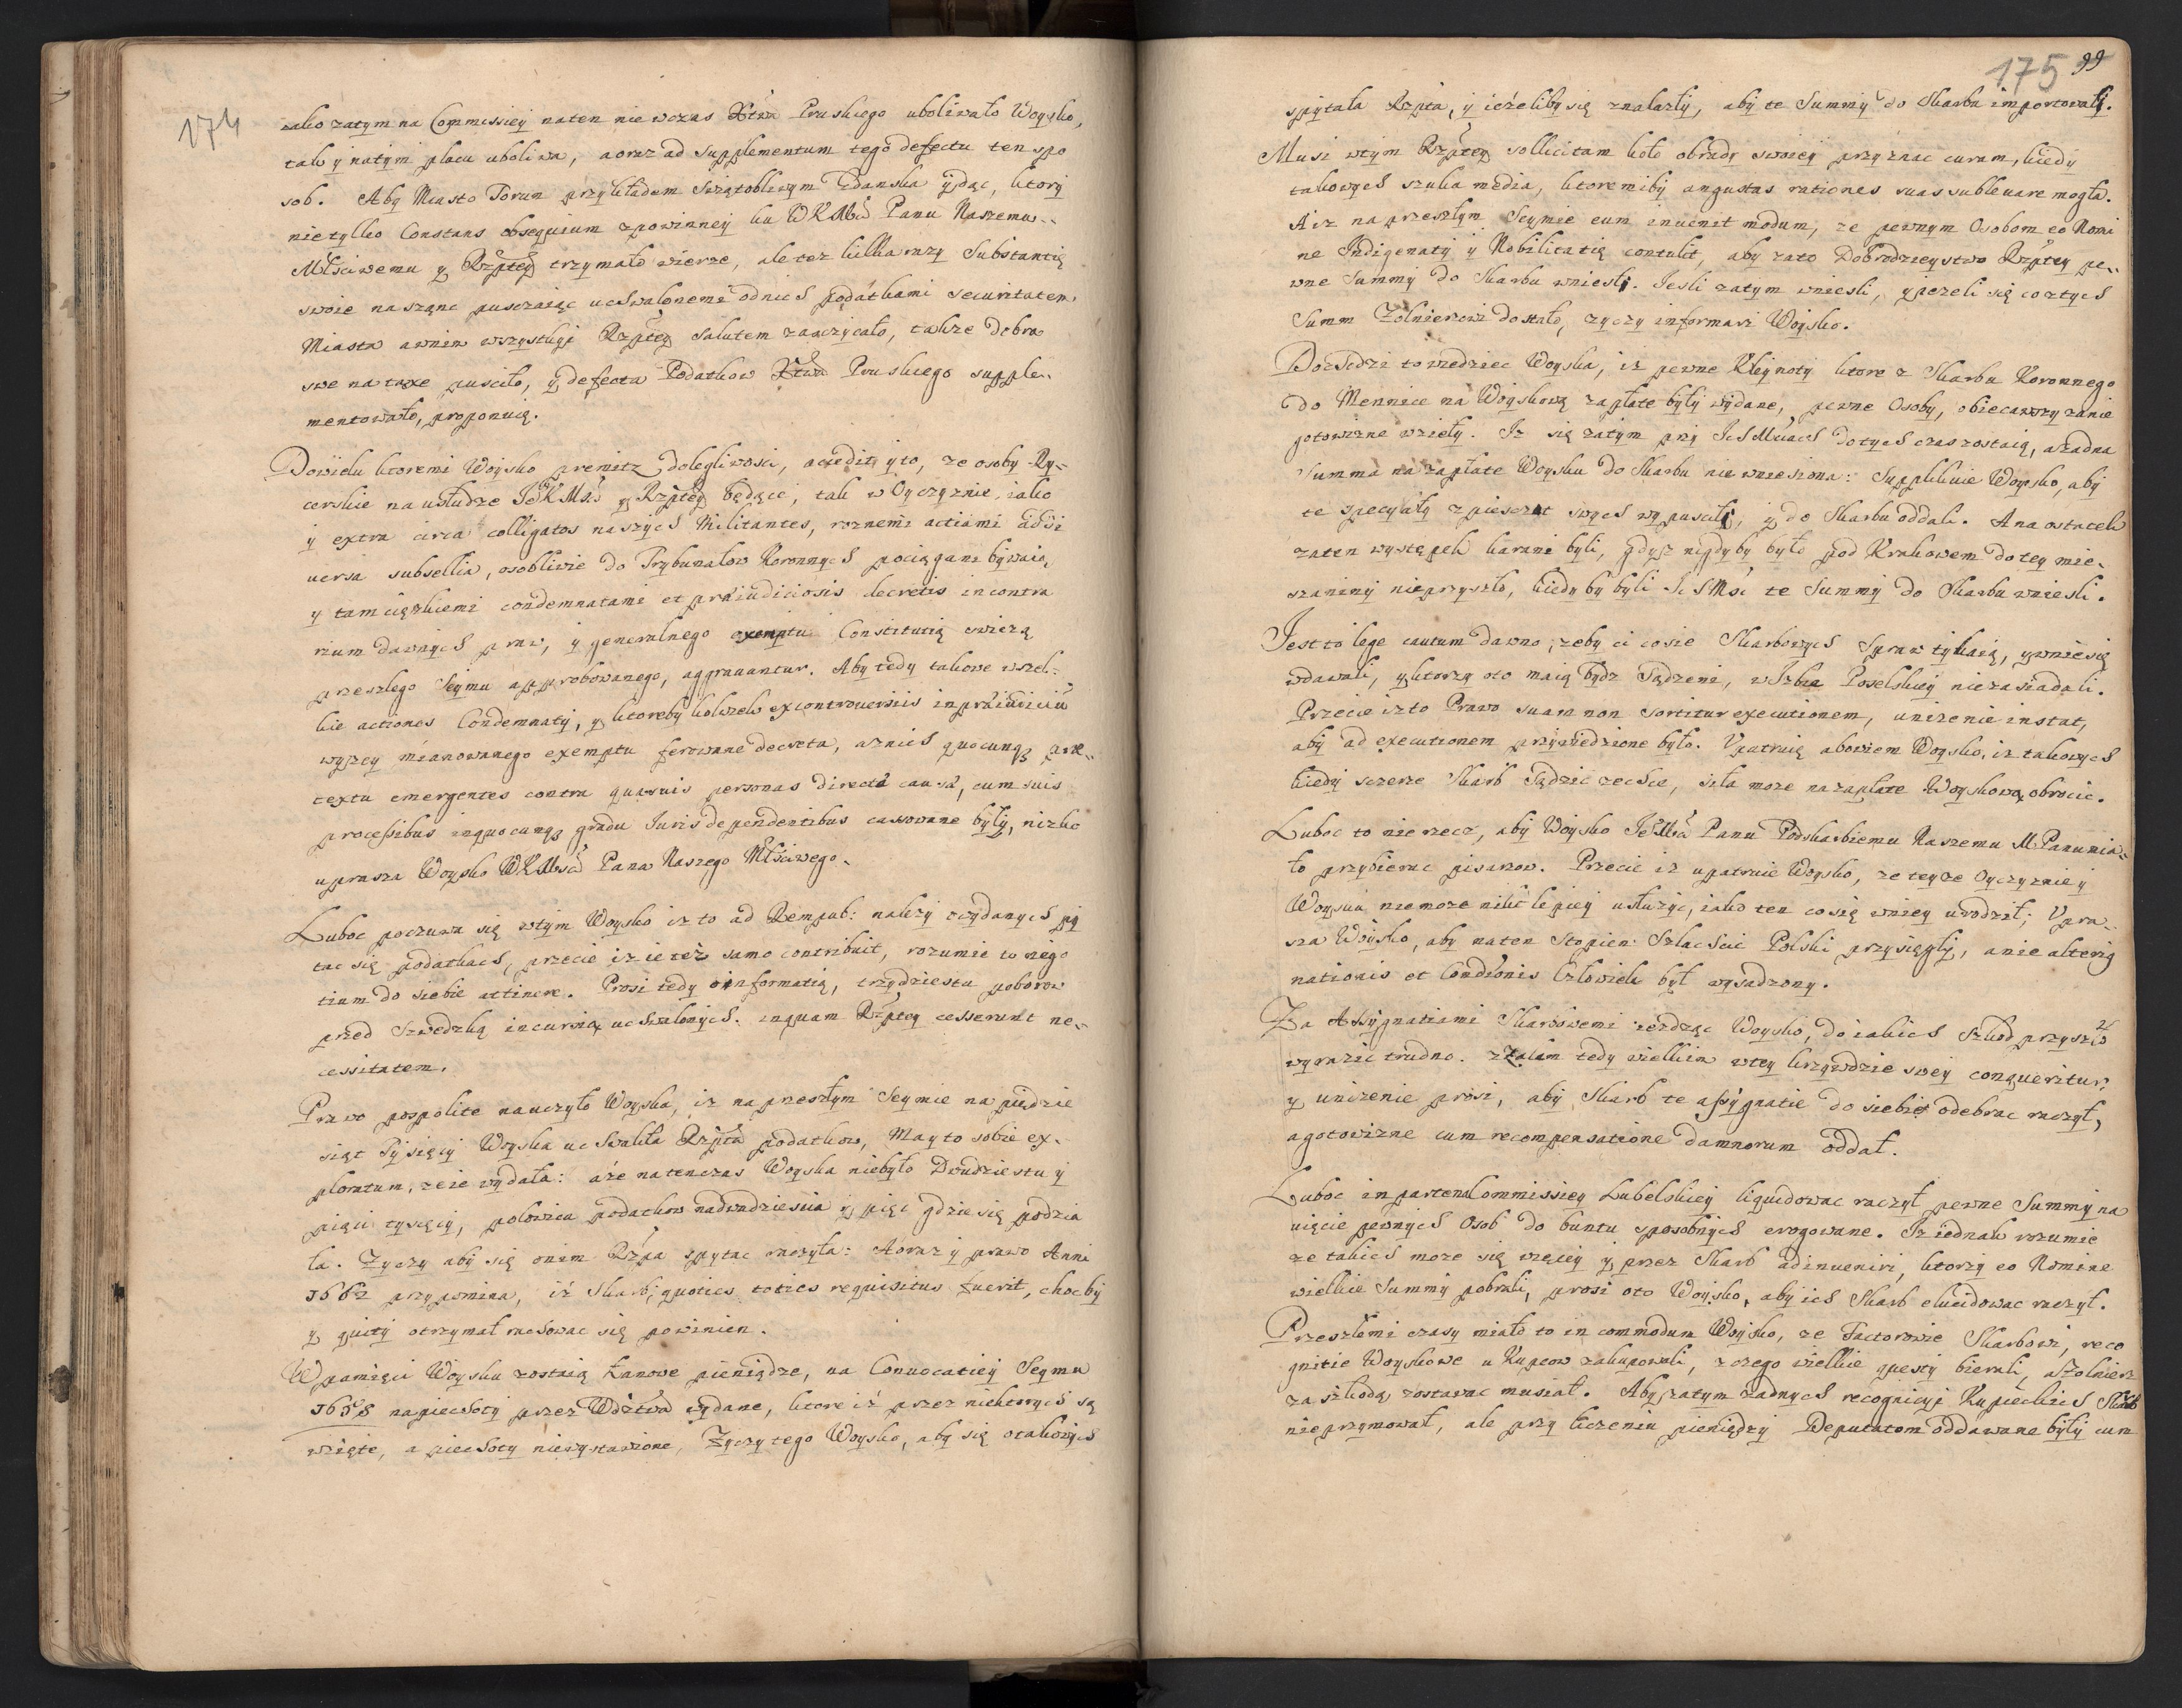 174
iako zatym na Commissiey naten nie wczas Xtwa Pruskiego uboliwało Woysko,
tak y natym placu uboliwa, a oraz ad supplementum tego defectu ten spo
sob. Aby Miasto Torun przykładem Swiątobliwym Gdanska ydąc, ktory
nie tylko Constans obsequium zpowinney ku WKMsci Panu Naszemu
Młsciwemu y Rzptey trzymało wierze, ale tez kilka razy Substantią
swoie na szanc puszczaiąc uchwalonemi od nich podatkami securitatem
Miasta a wnim wszystkyi Rzptey salutem zaszczycało, takze dobra
swe na taxe pusciło, y defecta Podatkow Xtwa Pruskiego supple-
mentowało, proponuią.
Dowielu ktoremi Woysko premitz dolegliwosci, accedit y to, ze osoby Ry-
cerskie na usłudze JeoKMsci y Rzptey będące, tak w Oyczyznie, iako
y extra circa colligatos naszych Militantes, roznemi actiami ad di
uersa subsellia, osobliwie do Trybunałow Koronnych pociągani bywaią,
y tam ciązkiemi condemnatami et praeiudiciosis decretis in contra
rium dawnych praw, y generalnego exemptu Constitutią swiezą
przeszłego Seymu approbowanego, aggrauantur. Aby tedy takowe wszel-
kie actiones Condemnaty, y ktoreby kolwiek ex controuersiis in praeiudiciu
wyzey mianowanego exemptu ferowane decreta, aznich quocunq prae-
textu emergentes contra quasuis personas directa causa, cum suis
processibus inquocunq gradu Iuris dependentibus cassowane były, nizko
uprasza Woysko WKMsci Pana Naszego Młsciwego.
Luboc poczuwa się wtym Woysko iz to ad Rempub: nalezy o wydanych py
tac się podatkach, przecie iz ie tez samo contribuit, rozumie to nego
tium do siebie attinere. Prosi tedy o informatią, trzydziestu poborow
przed Szwedzką incursią uchwalonych. inquam Rzptey cesserunt ne-
cessitatem.
Prawo pospolite nauczyło Woyska, iz na przeszłym Seymie na pięcdzie
siąt Tysięcy Woyska uchwaliła Rzpta podatkow, May to sobie ex-
ploratum, ze ie wydała: a ze natenczas Woyska niebyło Dwudziestu y
pięci tysięcy, połowica podatkow nadwadziescia y pięc gdzie się podzia
ła. Zyczy aby się onim Rzpa spytac raczyła: A oraz y prawo Anni
1662 przypomina, iz Skarb, quoties toties requisitus fuerit, chocby
y quity otrzymał rachowac się powinien.
W pamięci Woysku zostaią Łanowe pieniądze, na Conuocatiey Seymu
1658 na piechoty przez Wdztwa wydane, ktore iz przez niektorych są
wzięte, a piechoty niewystawione, Zyczy tego Woysko, aby się otakowych
175 99
spytała Rzpta, y iezeliby się znalazły, aby te Summy do Skarbu importowały.
Musi wtym Rzptey sollicitam koło obrady swoiey przyznac curam, kiedy
takowych szuka media, ktoremiby angustas rationes suas subleuare mogła.
A iz na przeszłym Seymie eum inuenit modum, ze pewnym Osobom eo Nomi
ne Indigenaty y Nobilitatią contulit, aby zato Dobrodzieystwo Rzptey pe-
wne Summy do Skarbu wniesli. Iesli zatym wniesli, y iezeli się co ztych
Summ Zołnierowi dostało, zyczy informari Woysko.
Dochodzi to wiedziec Woyska, iz pewne Kleynoty ktore z Skarbu Koronnego
do Mennice na Woyskową zapłate były wydane, pewne Osoby, obiecawszy zanie
gotowizne wzieły. Iz się zatym przy IchMciach dotych czas zostaią, a zadna
Summa na zapłate Woysku do Skarbu nie wniesiona: Supplikuie Woysko, aby
te specyały z pieczat swych wypuscili, y do Skarbu oddali. A na ostatek
zaten występek karani byli, gdysz nigdyby było pod Krakowem do tey mie-
szaniny nieprzyszło, kiedy by byli IchMsc te Summy do Skarbu wniesli.
Jest to lege cautum dawno, zeby ci co sie Skarbowych Spraw tykaią, y wnie się
wdawali, y ktorzy oto maią bydz Sądzeni, w Izbie Poselskiey niezasiadali.
Przecie iz to Prawo suam non sortitur executionem, unizenie instat,
aby ad executionem przywiedzione było. Upatruią abowiem Woysko, iz takowych
kiedy szczerze Skarb Sądzic zechce, siła moze na zapłate Woyskową obrocic.
Luboc to nie rzecz, aby Woysko JeoMsci Panu Podskarbiemu Naszemu M Panu mia-
ło przybierac pisarzow. Przecie iz upatruie Woysko, ze teyze Oyczyznie y
Woysku niemoze nikt lepiey usłuzyc, iako ten co się wniey urodził; Upra-
sza Woysko, aby naten Stopien Szlachcic Polski przysięgły, a nie alterig
nationis et Conditionis Człowiek był wysadzony.
Za Assygnatiami Skarbowemi iezdząc Woysko, do iakich szkod przyszło
wyrazic trudno. Zzalem tedy wielkim wtey krzywdzie swey conqueritur,
y unizenie prosi, aby Skarb te assygnatie do siebie odebrac raczył,
a gotowizne cum recompensatione damnorum oddał.
Luboc in partem Commissiey Lubelskiey liquidowac raczył pewne Summy na
uięcie pewnych Osob do buntu sposobnych erogowane. Iz iednak rozumie
ze takich moze się więcey y przez Skarb adinueniri, ktorzy eo Nomine
wielkie Summy pobrali, prosi oto Woysko, aby ich Skarb elucidowac raczył.
Przeszłemi czasy miało to in commodum Woysko, ze Factorowie Skarbowi, reco
gnitie Woyskowe u Kupcow zakupowali, z czego wielkie questy bierali, a Zołnierz
za szkodą zostawac musiał. Aby zatym zadnych recognicyi Kupieckich Skarb
nie przymował, ale przy liczeniu pieniędzy Deputatom oddawane były cum